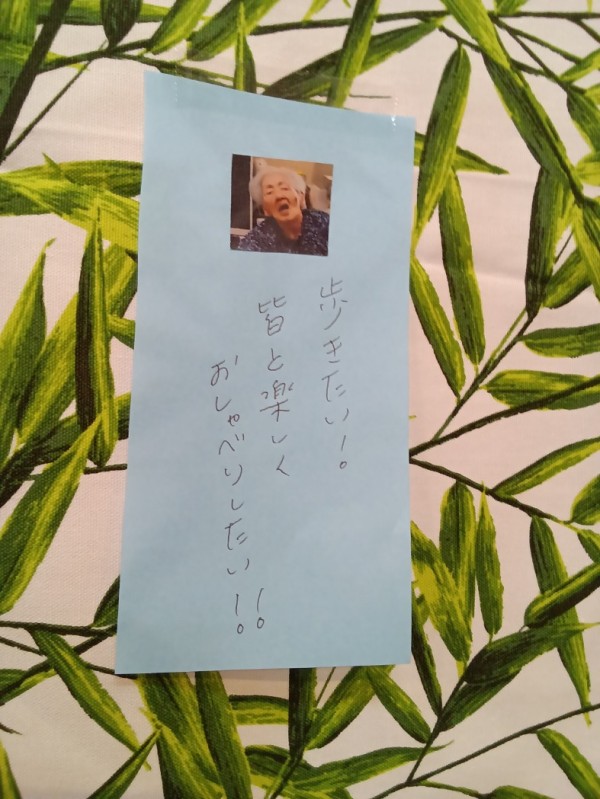 歩きたい！。
皆と楽しく
おしゃべりしたい！！